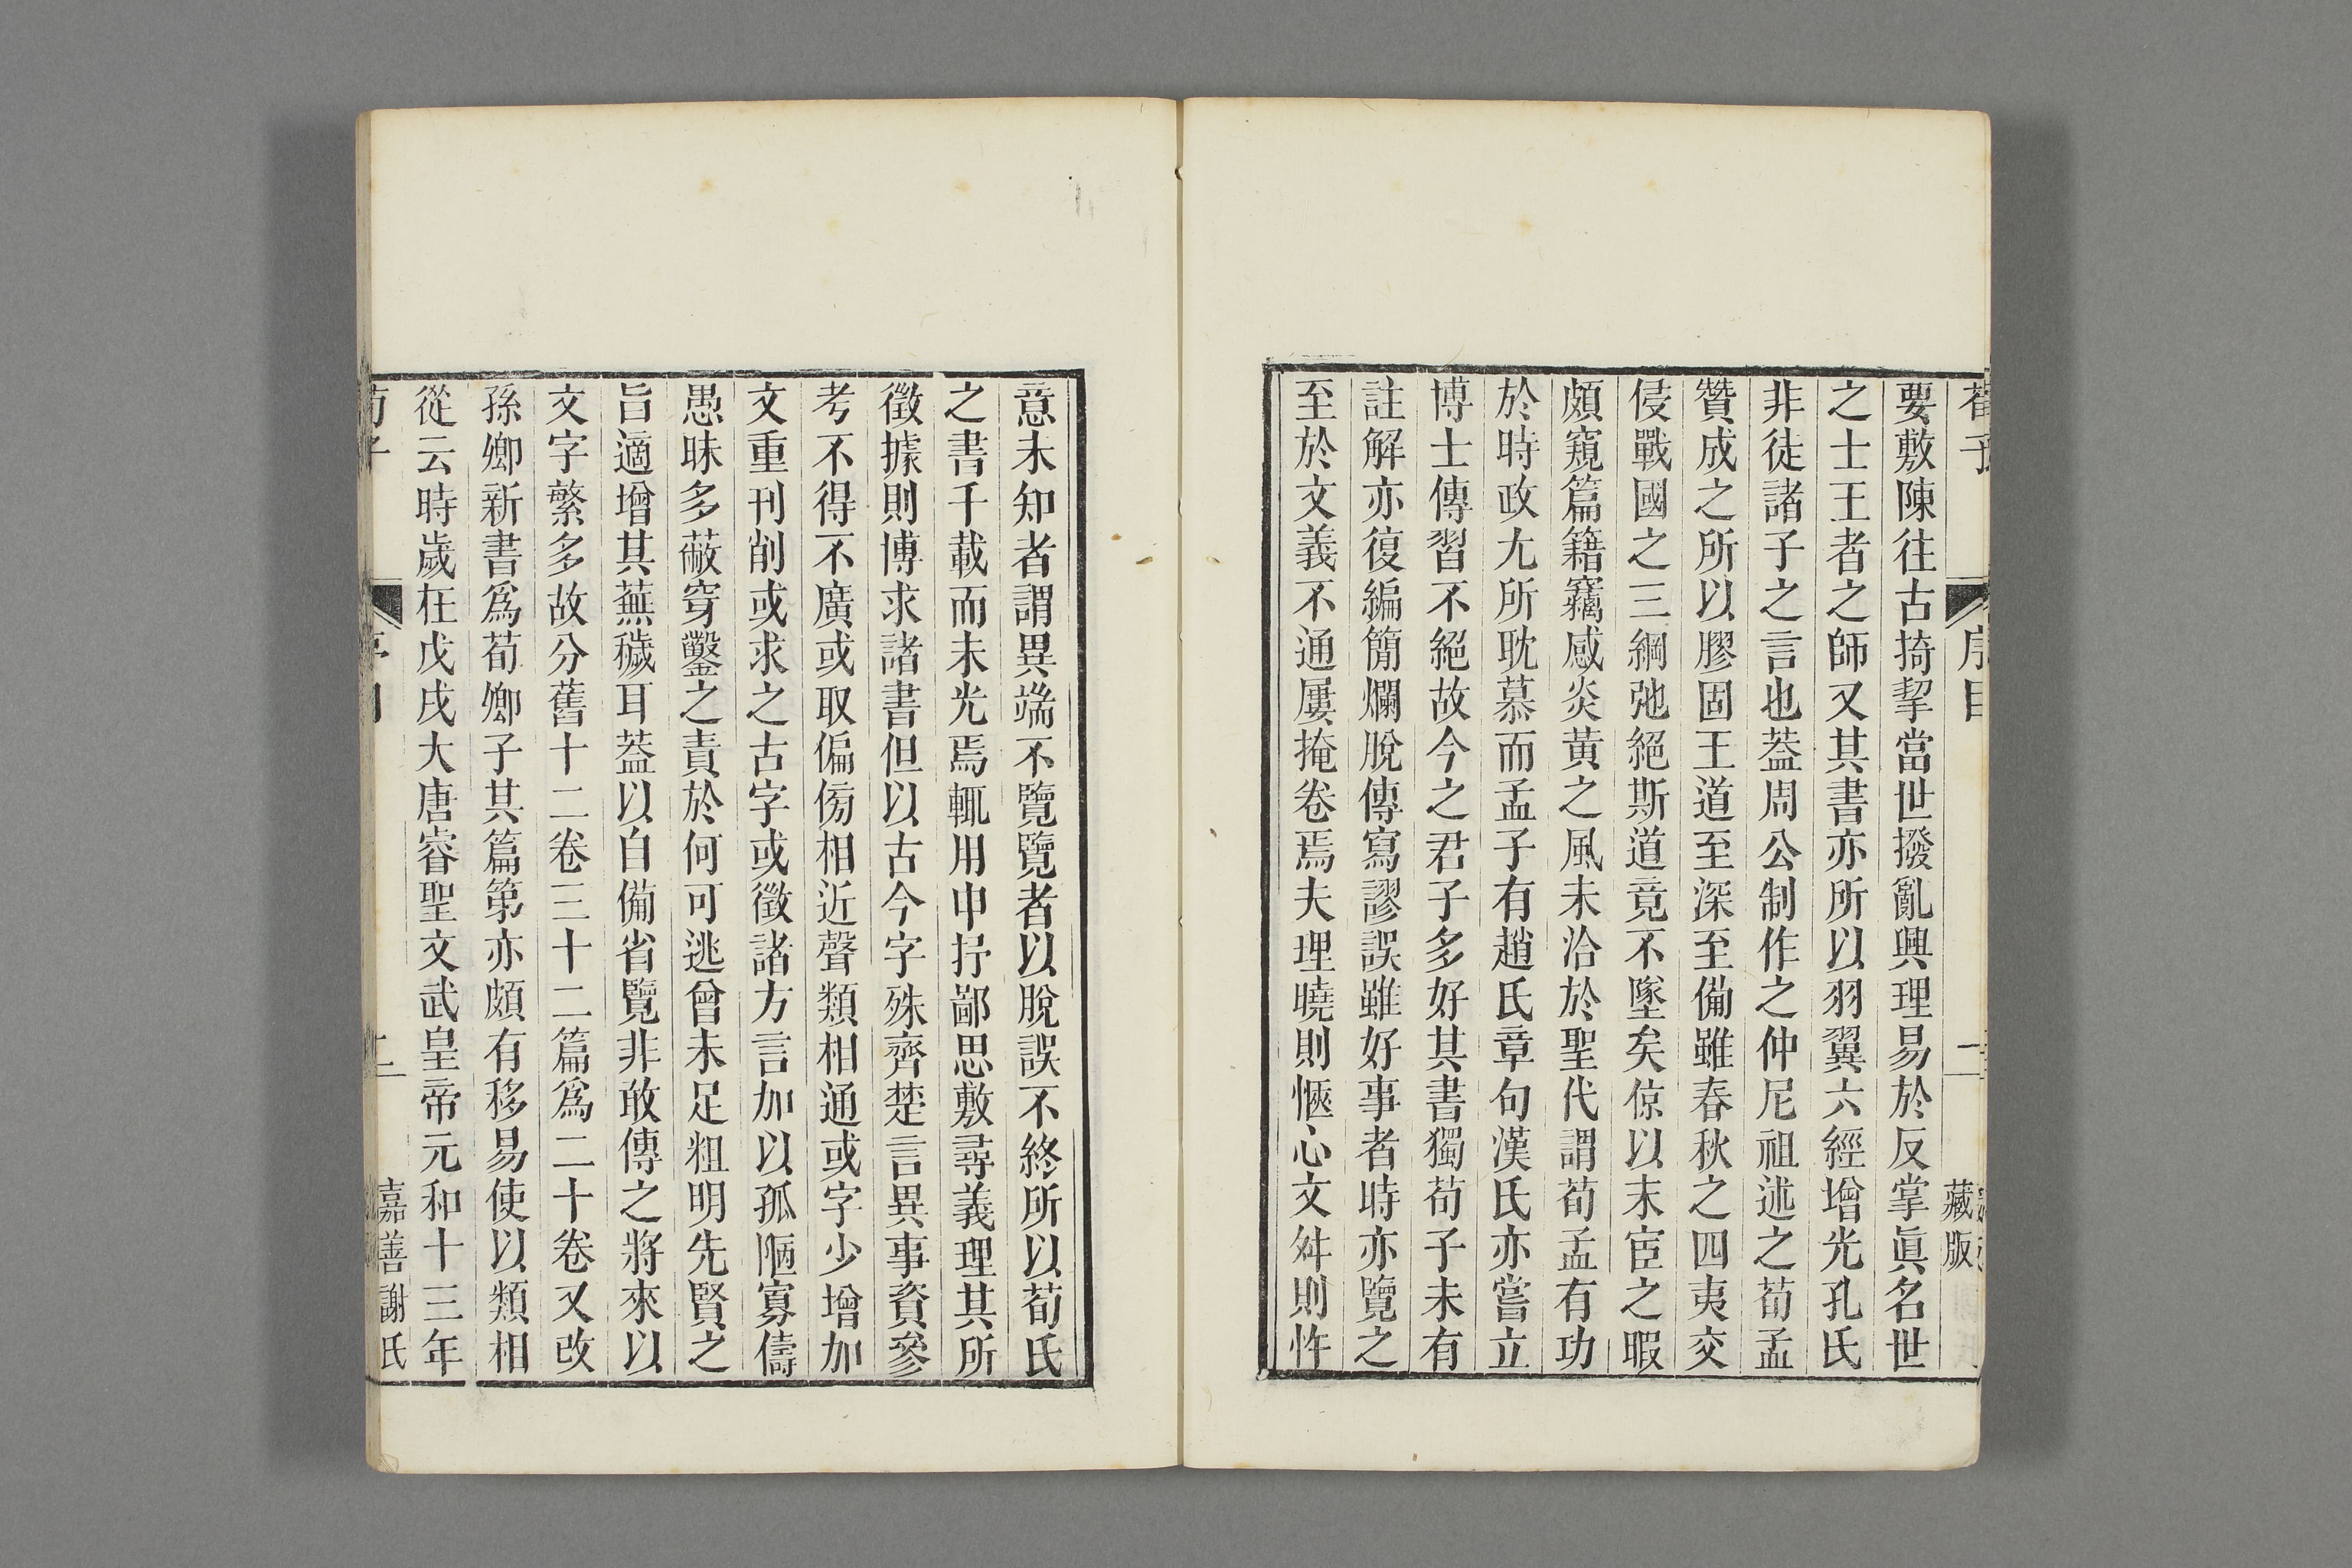 荀子
序目
一
藏版
要敷陳往古掎挈當世撥亂興理易於反掌眞名世
之士王者之師又其書亦所以羽翼六經增光孔氏
非徒諸子之言也葢周公制作之仲尼祖述之荀孟
贊成之所以膠固王道至深至備雖春秋之四夷交
侵戰國之三綱弛絕斯道竟不墜矣倞以末宦之暇
頗窺篇籍竊感炎黃之風未洽於聖代謂荀孟有功
於時政尢所耽慕而孟子有趙氏章句漢氏亦嘗立
博士傳習不絕故今之君子多好其書獨荀子未有
註解亦復編簡爛脫傳寫謬誤雖好事者時亦覽之
至於文義不通屢掩卷焉夫理曉則愜心文舛則忤
意未知者謂異端不覽覽者以脫誤不終所以荀氏
之書千載而未光焉輒用申抒鄙思敷尋義理其所
徵據則博求諸書但以古今字殊齊楚言異事資參
考不得不廣或取偏傍相近聲類相通或字少增加
文重刊削或求之古字或徵諸方言加以孤陋寡儔
愚昧多蔽穿鑿之責於何可逃曾未足粗明先賢之
旨適增其蕪穢耳葢以自備省覽非敢傳之將來以
文字繁多故分舊十二卷三十二篇爲二十卷又改
孫卿新書爲荀卿子其篇第亦頗有移易使以類相
從云時歲在戊戌大唐睿聖文武皇帝元和十三年
荀子
嘉善謝氏